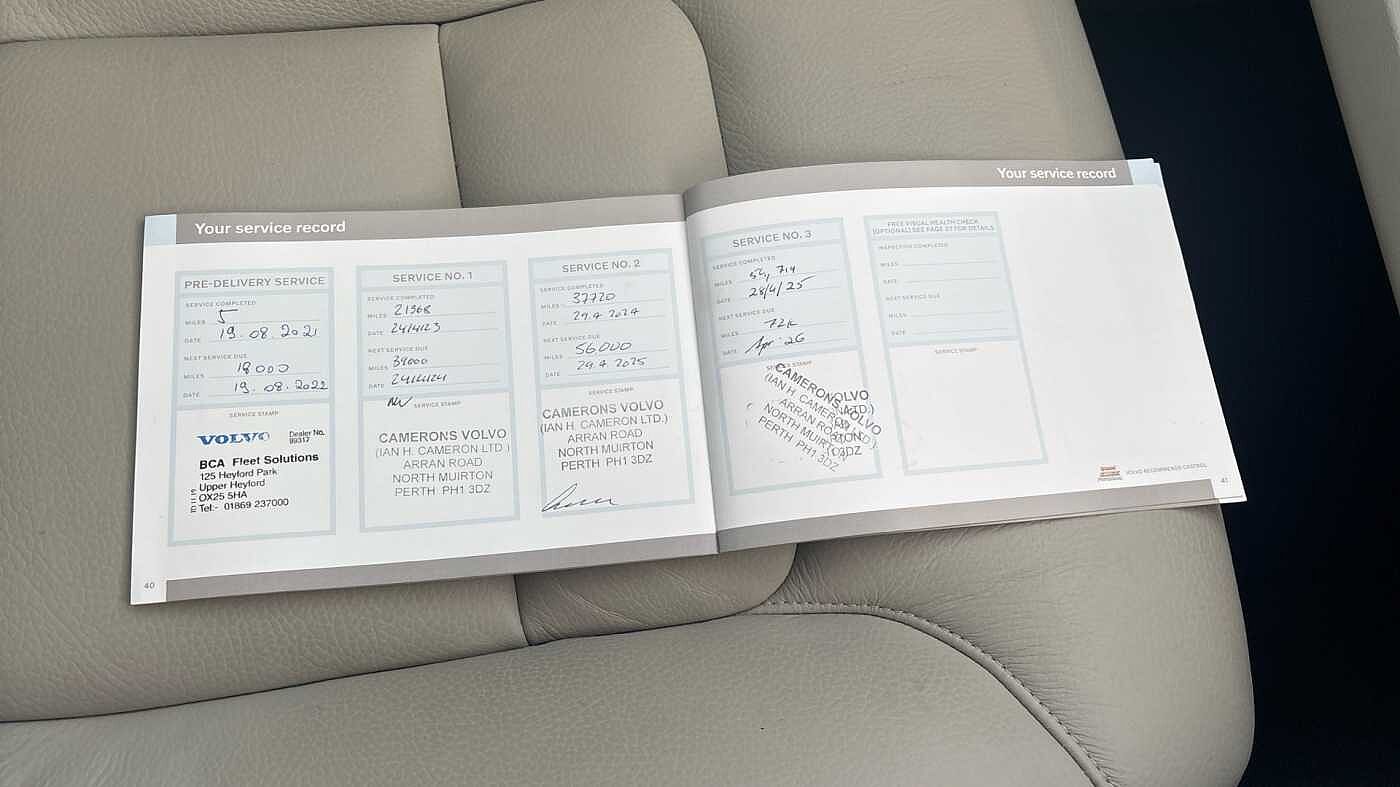 Your service record
PRE-DELIVERY SERVICE
SERVICE COMPLETED
MILES 5
DATE 19.08.2021
NEXT SERVICE DUE
MILES 18000
DATE 19.08.2022
SERVICE STAMP
VOLVO Dealer No.
99317
BCA Fleet Solutions
125 Heyford Park
Upper Heyford
OX25 5HA
Tel:- 01869 237000
40
SERVICE NO. 1
SERVICE COMPLETED
MILES 21368
DATE 24/4/23
NEXT SERVICE DUE
MILES 39000
DATE 24/4/24
SERVICE STAMP
CAMERONS VOLVO
(IAN H. CAMERON LTD.)
ARRAN ROAD
NORTH MUIRTON
PERTH PH1 3DZ
SERVICE NO. 2
SERVICE COMPLETED
MILES 37720
DATE 29.4.2024
NEXT SERVICE DUE
MILES 56000
DATE 29.4.2025
SERVICE STAMP
CAMERONS VOLVO
(IAN H. CAMERON LTD.)
ARRAN ROAD
NORTH MUIRTON
PERTH PH1 3DZ
Your service record
SERVICE NO. 3
SERVICE COMPLETED
MILES 54,714
DATE 28/4/25
NEXT SERVICE DUE
MILES 72k
DATE Apr 26
SERVICE STAMP
CAMERONS VOLVO
(IAN H. CAMERON LTD.)
ARRAN ROAD
NORTH MUIRTON
PERTH PH1 3DZ
FREE VISUAL HEALTH CHECK
(OPTIONAL) SEE PAGE 27 FOR DETAILS
INSPECTION COMPLETED
MILES
DATE
NEXT SERVICE DUE
MILES
DATE
SERVICE STAMP
VOLVO RECOMMENDS CASTROL
41